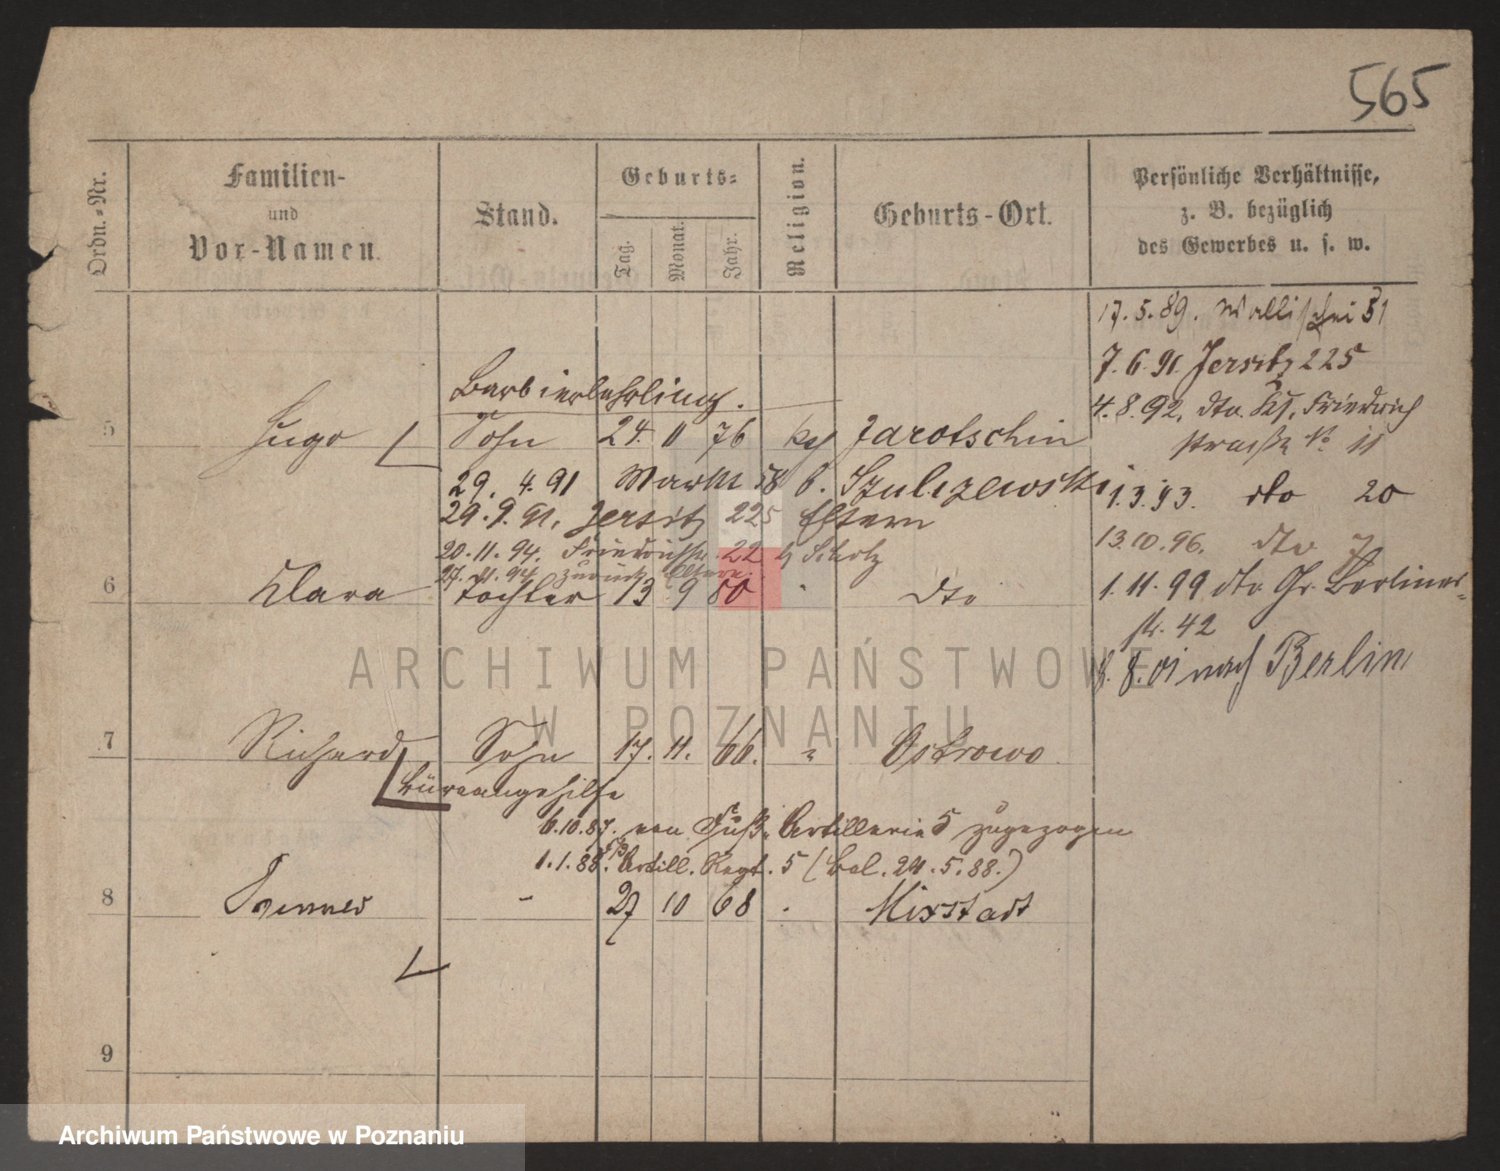 565
Ordn.-Nr.
Familien-
und
Vor-Namen.
Stand.
Geburts-
Tag.
Monat.
Jahr.
Religion.
Geburts-Ort.
Persönliche Verhältnisse,
z. B. bezüglich
des Gewerbes u. s. w.
17. 5. 89. Wallischei 51
7. 6. 91 Jersitz 225
4. 8. 92. dto. Friedrich
straße No 11
1. 3. 93. dto 20
13. 10. 96. dto 7
1. 11. 99 dto Gr. Berliner-
str. 42
8. 8. 01 nach Berlin
Barbierlehrling.
5 Hugo Sohn 24. 11 76 Jarotschin
29. 4. 91 Markt 58 b. Szulczewski
29. 9. 91. Jersitz 225 Eltern
20. 11. 94. Friedrichstr. 22 b Scholz
27. 11. 94 zurück Eltern.
6 Clara Tochter 13 9 80 " dto
7 Richard Sohn 17. 11. 66. " Ostrowo
Büreaugehilfe
6. 10. 87. von Fuß-Artillerie 5 zugezogen
1. 1. 88. Artill. Regt. 5 (Bel. 24. 5. 88.)
8 - 27 10 68 " Mixstadt
9
ARCHIWUM PAŃSTWOWE
W POZNANIU
Archiwum Państwowe w Poznaniu